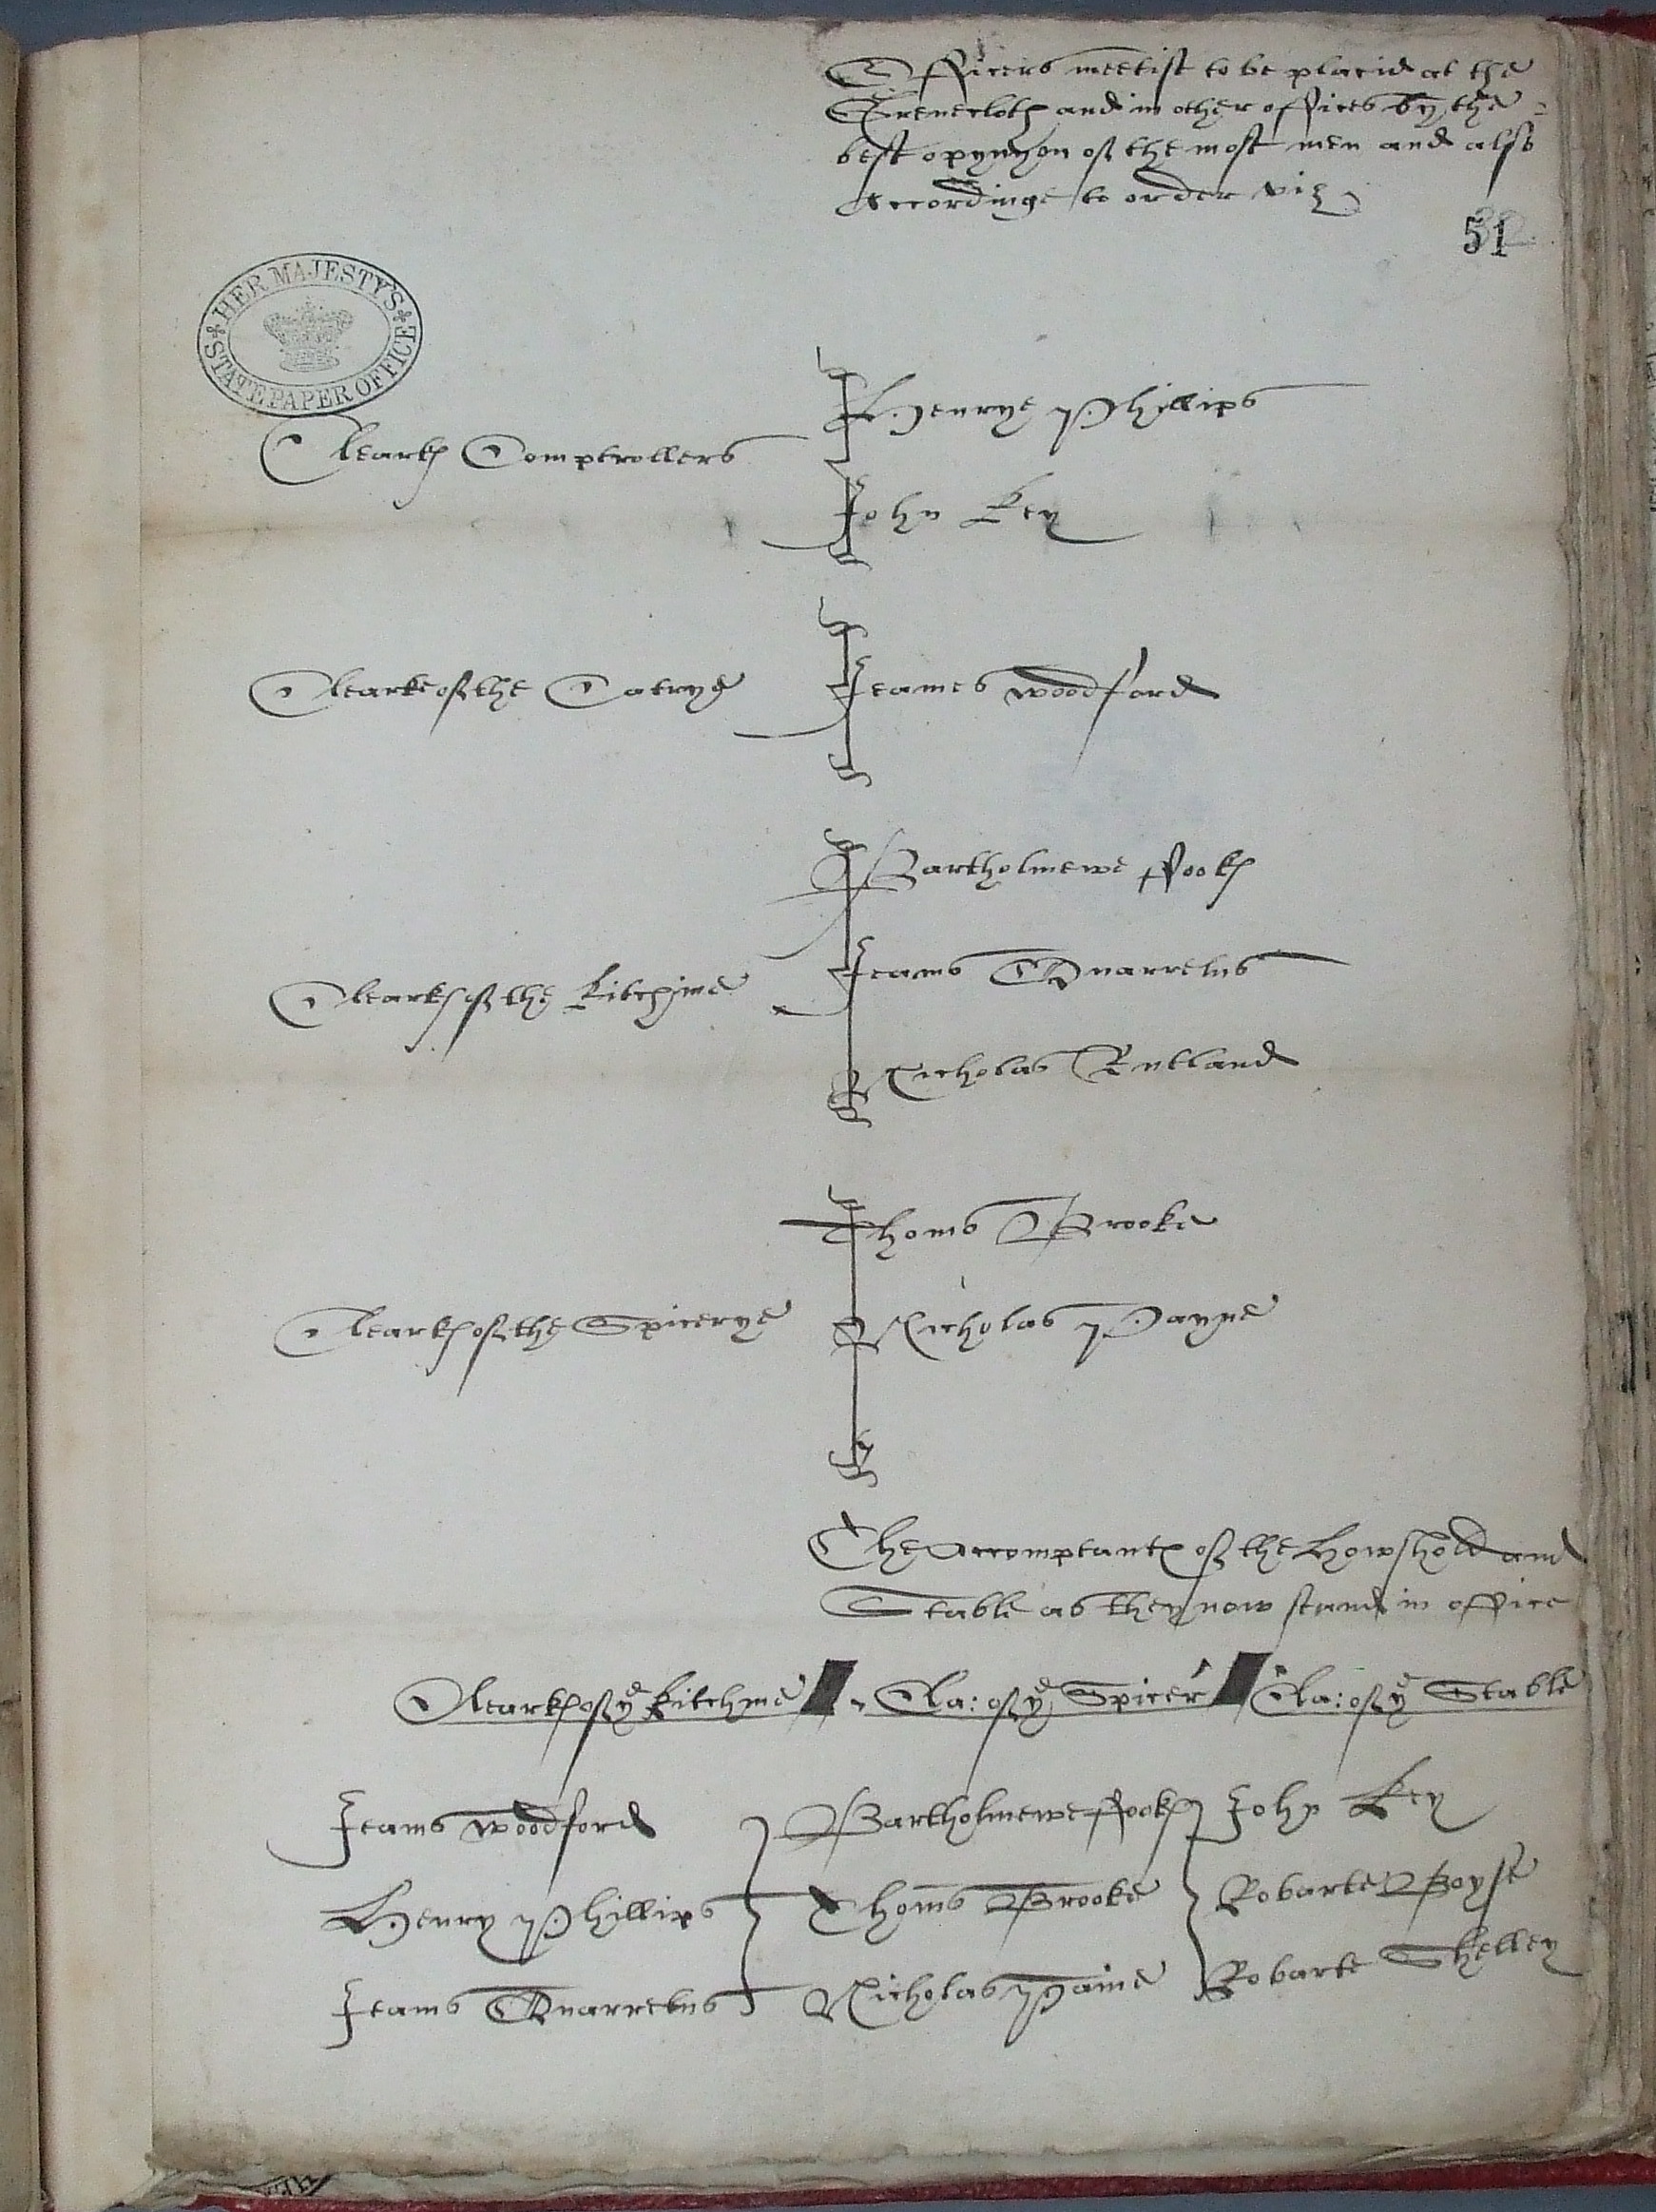 Officers meetist to be placid at the
Grenecloth and in other offices by the
best opynyon of the most men and also
Accordinge to order viz
51
HER MAJESTY'S
STATE PAPER OFFICE
Clearkes Comptrollers
Henrye Phillips
John Key
Clearke of the Catrye
Jeames Woodford
Clearkes of the kitchine
Bartholmewe ffookes
Jeams Quarrelus
Nicholas Rutland
Clearkes of the Spicerye
Thoms Brooke
Nicholas Payne
The Accomptantes of the Howshold and
Stable as they now stand in office
Clearkes of ye kitchine Cla: of ye Spicer Cla: of ye Stable
Jeams Woodford Bartholmewe ffookes John Key
Henry Phillips Thoms Brooke Robarte Boyse
Jeams Quarrelus Nicholas Paine Robarte Skelley